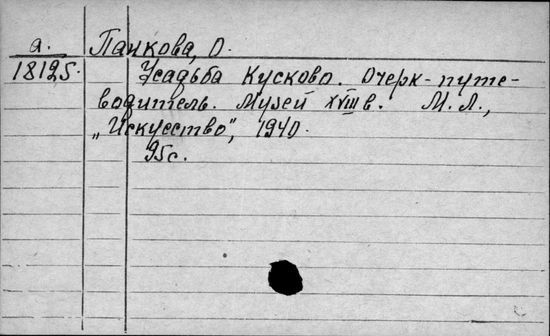 а. Панкова, О.
18125. Усадьба Кусково. Очерк-путе-
водитель. Музей XVIII в. М.Л.,
„Искусство", 1940.
95с.